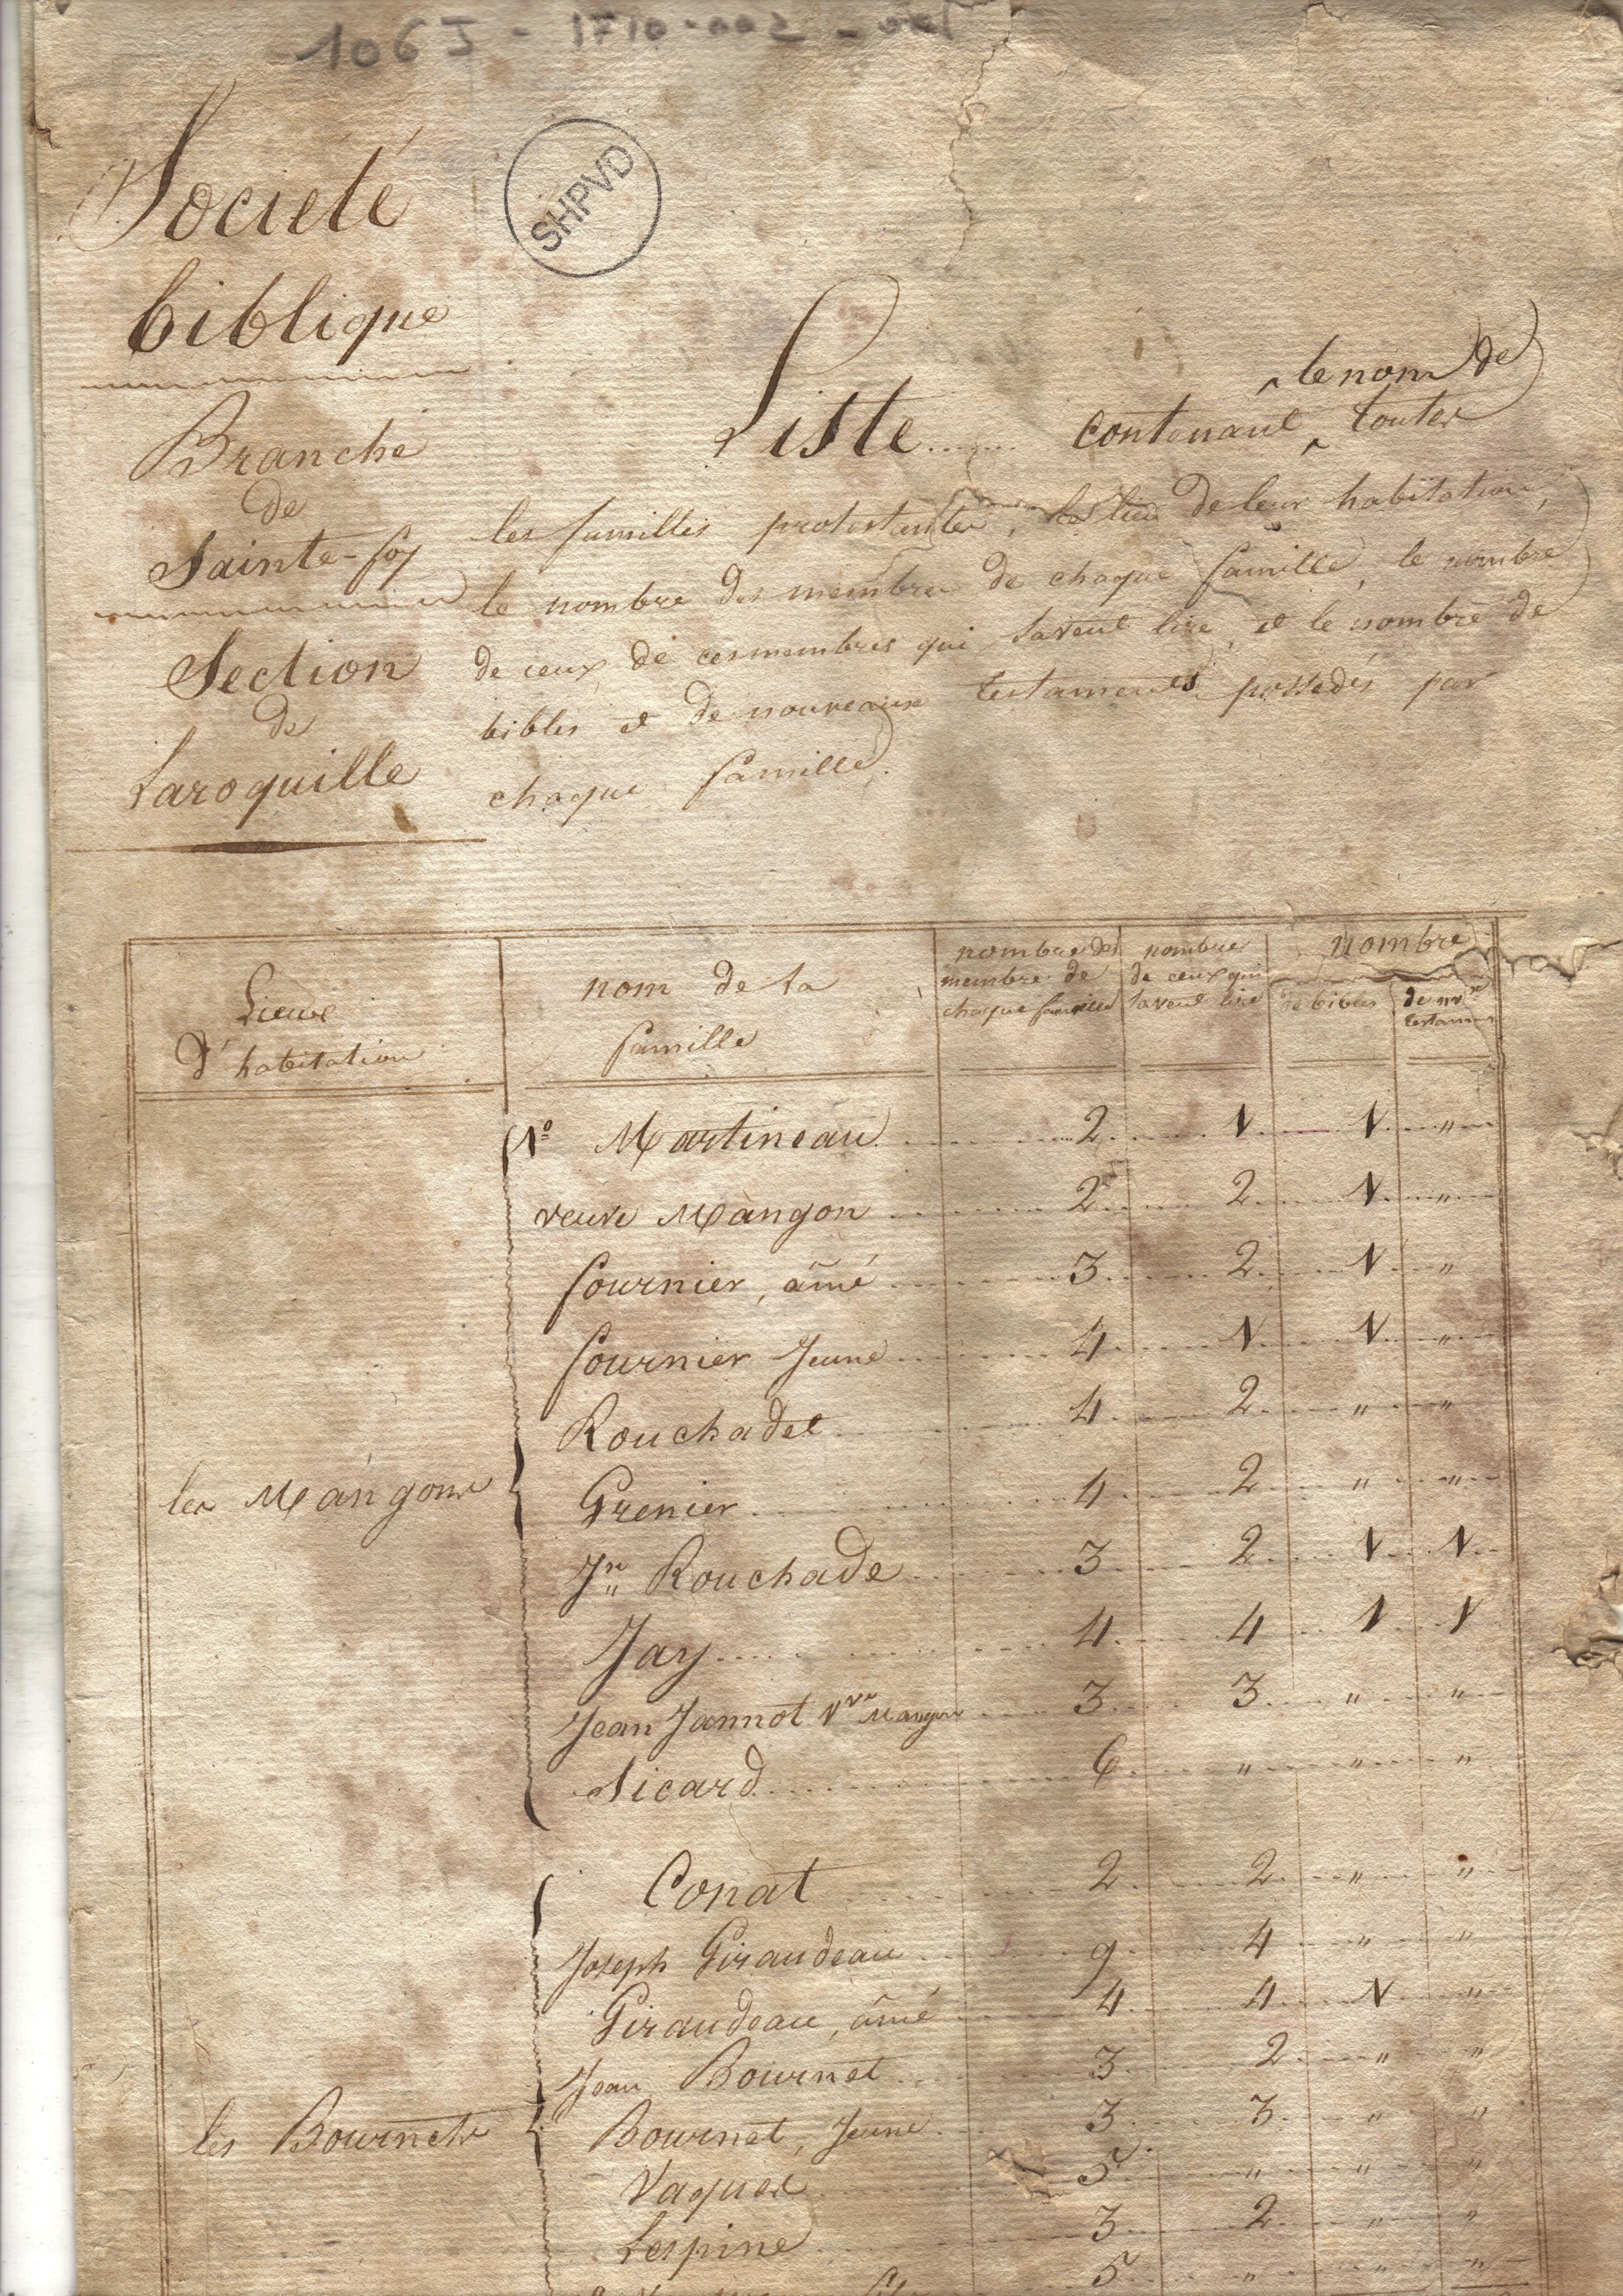 106J - 1710-002 - 001
SHPVD
Societé
biblique
Branche
de
Sainte-foy
Section
de
Laroquille
le nom de
Liste ..... contenant toutes
les familles protestantes, le lieu de leur habitation,
le nombre des membres de chaque famille, le nombre
de ceux de ces membres qui savent lire, et le nombre de
bibles et de nouveaux testaments possedés par
chaque famille.
Lieux d'habitation | nom de la famille | nombre des membre de chaque famille | nombre de ceux qui savent lire | nombre de bibles | de nvx testamens
les Mangons
1° Martineau 2 1 1 "
veuve Mangon 2 2 1 "
fournier, aîné 3 2 1 "
fournier Jeune 4 1 1 "
Rouchadet 4 2 " "
Grenier 4 2 " "
Jn Rouchade 3 2 1 1
Jay 4 4 1 1
Jean Jannot Vve Mangon 3 3 " "
Sicard 6 " " "
les Bournets
Conat 2 2 " "
Joseph Giraudeau 9 4 " "
Giraudeau, aîné 4 4 1 "
Jean Bournet 3 2 " "
Bournet, Jeune 3 3 " "
Vaquet 5 " " "
Lespine 3 2 " "
5 " " "